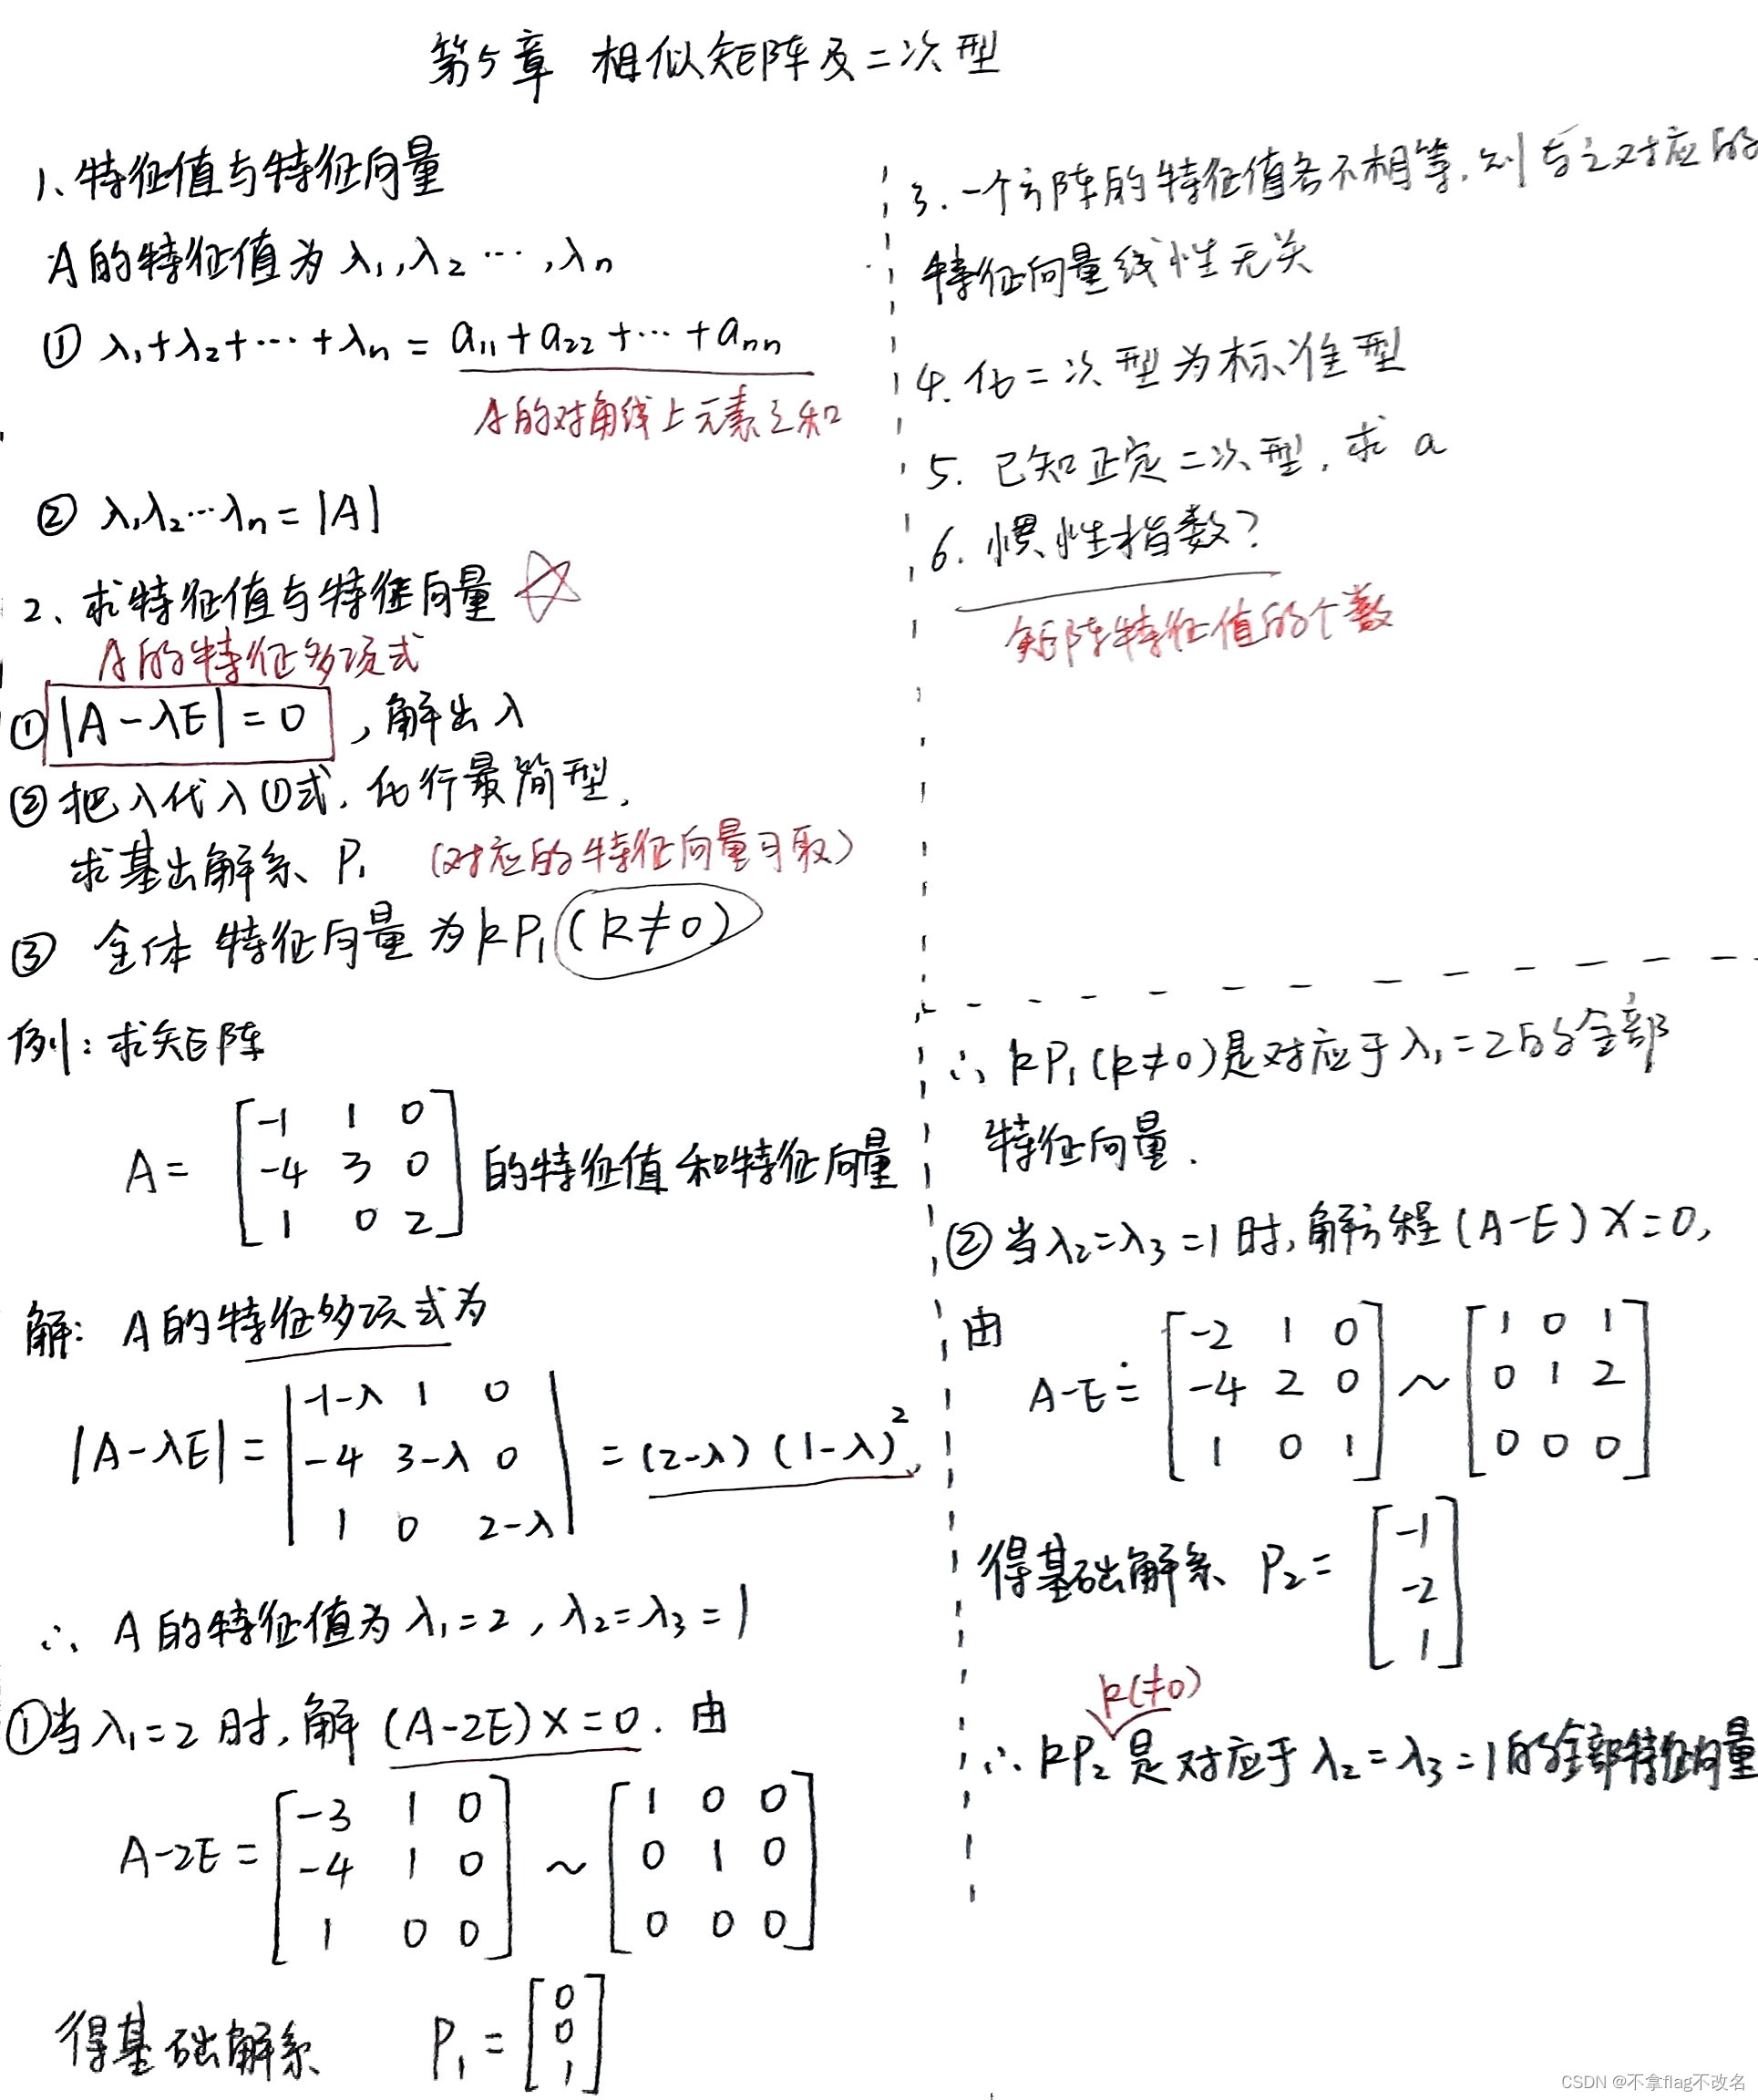 第5章 相似矩阵及二次型
1、特征值与特征向量
A的特征值为 λ₁,λ₂ ⋯,λn
① λ₁+λ₂+⋯+λn = a₁₁+a₂₂+⋯+ann
A的对角线上元素之和
② λ₁λ₂⋯λn = |A|
2、求特征值与特征向量 ☆
A的特征多项式
① |A-λE|=0 ,解出λ
② 把λ代入①式,化行最简型,
求基出解系 P₁ (对应的特征向量可取)
③ 全体特征向量为kP₁(k≠0)
例1:求矩阵
A= [-1 1 0
-4 3 0 的特征值和特征向量
1 0 2]
解: A的特征多项式为
|A-λE| = |-1-λ 1 0
-4 3-λ 0 = (2-λ)(1-λ)²,
1 0 2-λ|
∴ A的特征值为λ₁=2,λ₂=λ₃=1
①当λ₁=2时,解(A-2E)x=0. 由
A-2E= [-3 1 0
-4 1 0
1 0 0] ~ [1 0 0
0 1 0
0 0 0]
得基础解系 P₁= [0
0
1]
3. 一个方阵的特征值各不相等,则与之对应的
特征向量线性无关
4. 化二次型为标准型
5. 已知正定二次型,求 a
6. 惯性指数?
矩阵特征值的个数
∴ kP₁(k≠0)是对应于λ₁=2的全部
特征向量.
②当λ₂=λ₃=1时,解方程(A-E)X=0,
由
A-E= [-2 1 0
-4 2 0
1 0 1] ~ [1 0 1
0 1 2
0 0 0]
得基础解系 P₂= [-1
-2
1]
k(≠0)
∴ kP₂是对应于λ₂=λ₃=1的全部特征向量
CSDN @不拿flag不改名